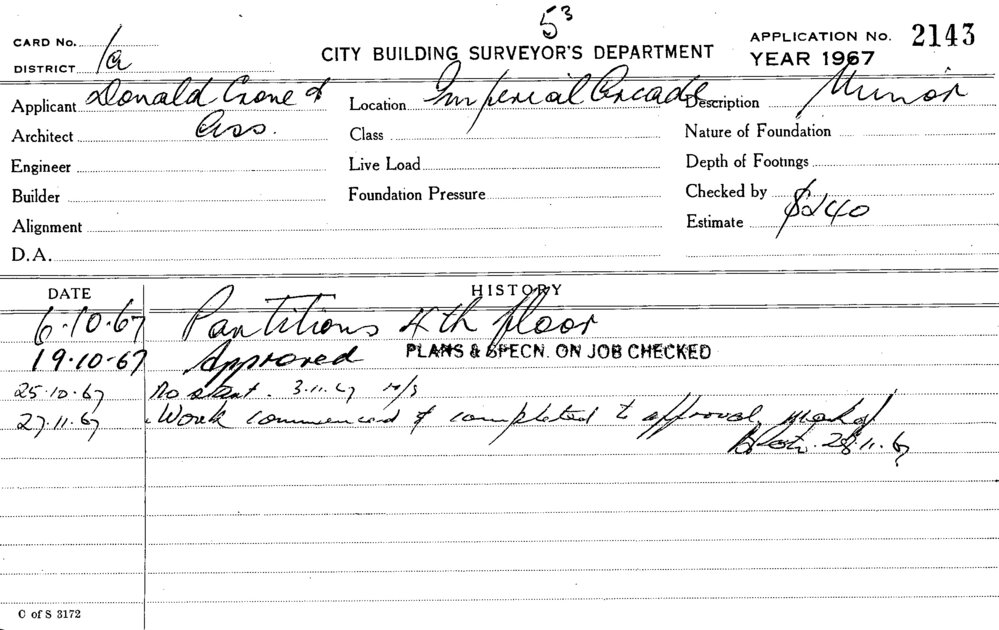 5³
CARD No. 1a
DISTRICT
CITY BUILDING SURVEYOR'S DEPARTMENT
APPLICATION No. 2143
YEAR 1967
Applicant Donald Crone &
Location Imperial Arcade
Description Minor
Architect Ass.
Class
Nature of Foundation
Engineer
Live Load
Depth of Footings
Builder
Foundation Pressure
Checked by
Alignment
Estimate $240
D.A.
DATE HISTORY
6.10.67 Partitions 4th floor
19.10.67 Approved PLANS & SPECN. ON JOB CHECKED
25.10.67 No start. 3.11.67 N/S
27.11.67 Work commenced & completed to approval
28.11.67
C of S 3172